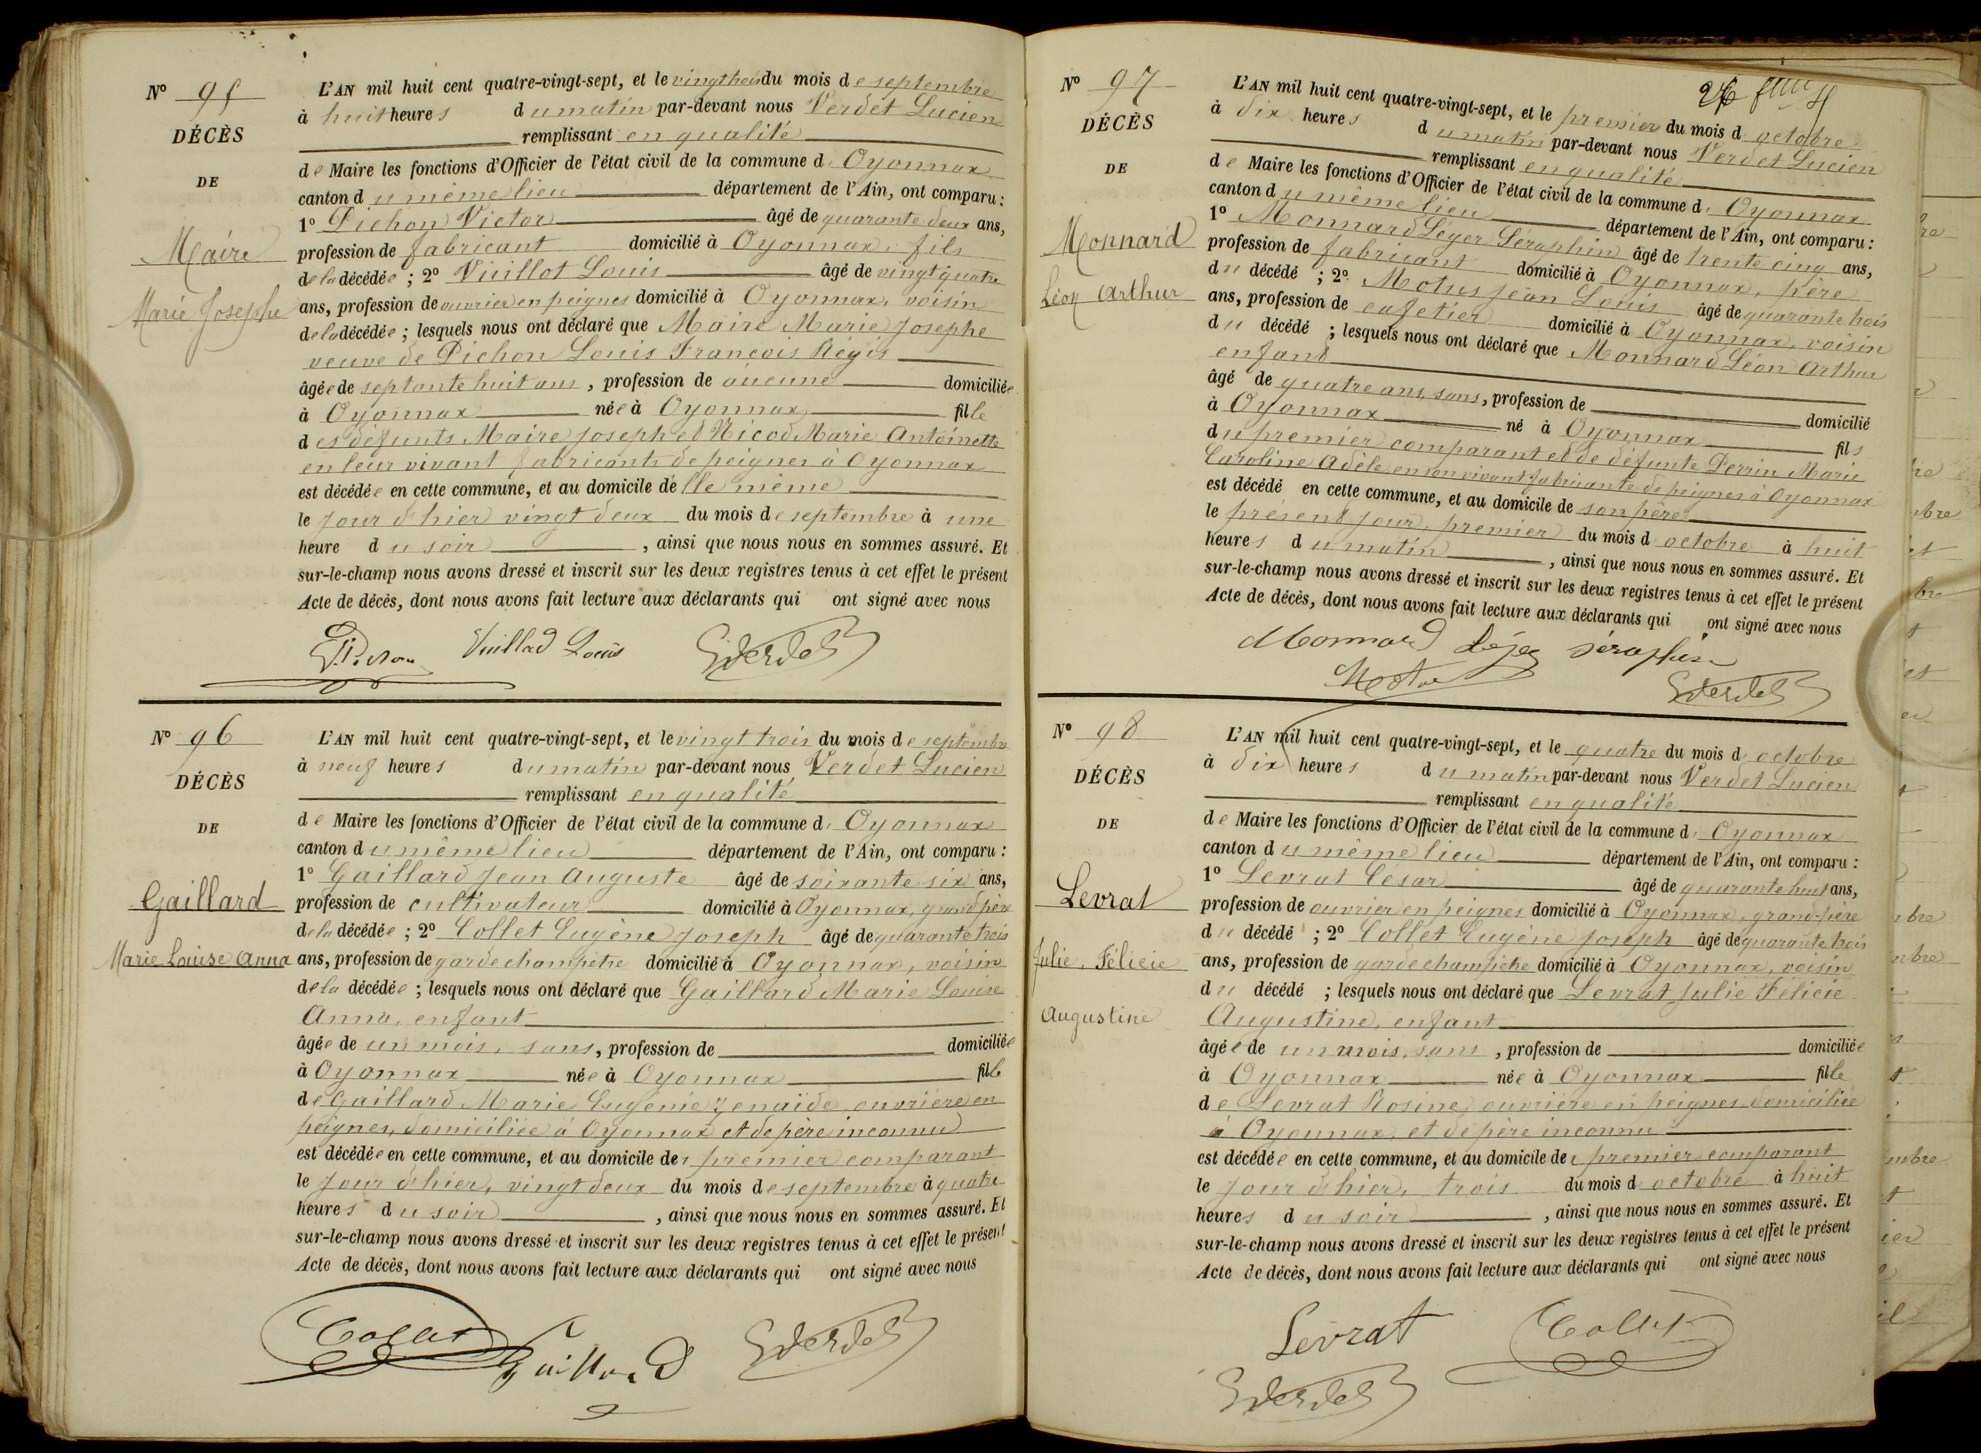 N° 95
DÉCÈS
DE
Maire
Marie Josephe
L'AN mil huit cent quatre-vingt-sept, et le vingt trois du mois de septembre
à huit heures du matin par-devant nous Verdet Lucien
remplissant en qualité
de Maire les fonctions d'Officier de l'état civil de la commune d' Oyonnax
canton du même lieu département de l'Ain, ont comparu :
1° Pichon Victor âgé de quarante deux ans,
profession de fabricant domicilié à Oyonnax, fils
de la décédée ; 2° Vuillot Louis âgé de vingt quatre
ans, profession de ouvrier en peignes domicilié à Oyonnax, voisin
de la décédée ; lesquels nous ont déclaré que Maire Marie Josephe
veuve de Pichon Louis François Régis
âgée de septante huit ans, profession de aucune domiciliée
à Oyonnax née à Oyonnax fille
des défunts Maire Joseph et Nicod Marie Antoinette
en leur vivant fabricants de peignes à Oyonnax
est décédée en cette commune, et au domicile de elle même
le jour d'hier vingt deux du mois de septembre à une
heure du soir, ainsi que nous nous en sommes assuré. Et
sur-le-champ nous avons dressé et inscrit sur les deux registres tenus à cet effet le présent
Acte de décès, dont nous avons fait lecture aux déclarants qui ont signé avec nous
Louis
N° 96
DÉCÈS
DE
Gaillard
Marie Louise Anna
L'AN mil huit cent quatre-vingt-sept, et le vingt trois du mois de septembre
à neuf heures du matin par-devant nous Verdet Lucien
remplissant en qualité
de Maire les fonctions d'Officier de l'état civil de la commune d' Oyonnax
canton du même lieu département de l'Ain, ont comparu :
1° Gaillard Jean Auguste âgé de soixante six ans,
profession de cultivateur domicilié à Oyonnax, grand père
de la décédée ; 2° Collet Eugène Joseph âgé de quarante trois
ans, profession de garde champêtre domicilié à Oyonnax, voisin
de la décédée ; lesquels nous ont déclaré que Gaillard Marie Louise
Anna, enfant
âgée de un mois, sans, profession de domiciliée
à Oyonnax née à Oyonnax fille
de Gaillard Marie Eugénie Zénaïde ouvrière en
peignes, domiciliée à Oyonnax et de père inconnu
est décédée en cette commune, et au domicile du premier comparant
le jour d'hier, vingt deux du mois de septembre à quatre
heures du soir, ainsi que nous nous en sommes assuré. Et
sur-le-champ nous avons dressé et inscrit sur les deux registres tenus à cet effet le présent
Acte de décès, dont nous avons fait lecture aux déclarants qui ont signé avec nous
Collet Gaillard
N° 97
DÉCÈS
DE
Monnard
Léon Arthur
L'AN mil huit cent quatre-vingt-sept, et le premier du mois d'octobre
à dix heures du matin par-devant nous Verdet Lucien
remplissant en qualité
de Maire les fonctions d'Officier de l'état civil de la commune d' Oyonnax
canton du même lieu département de l'Ain, ont comparu :
1° Monnard Léger Séraphin âgé de trente cinq ans,
profession de fabricant domicilié à Oyonnax, père
du décédé ; 2° Jean Louis âgé de quarante trois
ans, profession de cafetier domicilié à Oyonnax, voisin
du décédé ; lesquels nous ont déclaré que Monnard Léon Arthur
enfant
âgé de quatre ans, sans, profession de domicilié
à Oyonnax né à Oyonnax fils
du premier comparant et de défunte Perrin Marie
Caroline Adèle, en son vivant fabricante de peignes à Oyonnax
est décédé en cette commune, et au domicile de son père
le présent jour, premier du mois d'octobre à huit
heures du matin, ainsi que nous nous en sommes assuré. Et
sur-le-champ nous avons dressé et inscrit sur les deux registres tenus à cet effet le présent
Acte de décès, dont nous avons fait lecture aux déclarants qui ont signé avec nous
Monnard Léger Séraphin
N° 98
DÉCÈS
DE
Levrat
Julie Félicie
Augustine
L'AN mil huit cent quatre-vingt-sept, et le quatre du mois d'octobre
à dix heures du matin par-devant nous Verdet Lucien
remplissant en qualité
de Maire les fonctions d'Officier de l'état civil de la commune d' Oyonnax
canton du même lieu département de l'Ain, ont comparu :
1° Levrat César âgé de quarante huit ans,
profession de ouvrier en peignes domicilié à Oyonnax, grand-père
du décédé ; 2° Collet Eugène Joseph âgé de quarante trois
ans, profession de garde champêtre domicilié à Oyonnax, voisin
du décédé ; lesquels nous ont déclaré que Levrat Julie Félicie
Augustine, enfant
âgée de un mois, sans, profession de domiciliée
à Oyonnax née à Oyonnax fille
de Levrat Rosine, ouvrière en peignes domiciliée
à Oyonnax, et de père inconnu
est décédée en cette commune, et au domicile du premier comparant
le jour d'hier, trois du mois d'octobre à huit
heures du soir, ainsi que nous nous en sommes assuré. Et
sur-le-champ nous avons dressé et inscrit sur les deux registres tenus à cet effet le présent
Acte de décès, dont nous avons fait lecture aux déclarants qui ont signé avec nous
Levrat Collet